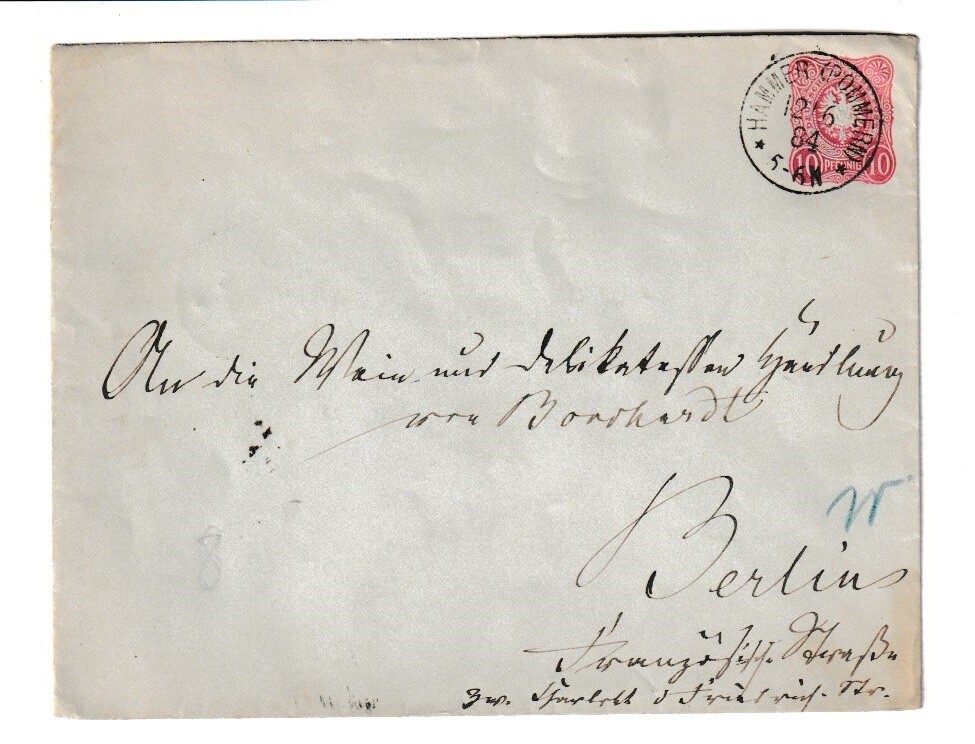 HAMMER (POMMERN)
12 6
84
5-6 N
10 PFENNIG 10
An die Wein und Delikatessen Handlung
von Borchardt
W
Berlin
8
Französische Straße
zw. Charlott d Friedrich-Str.